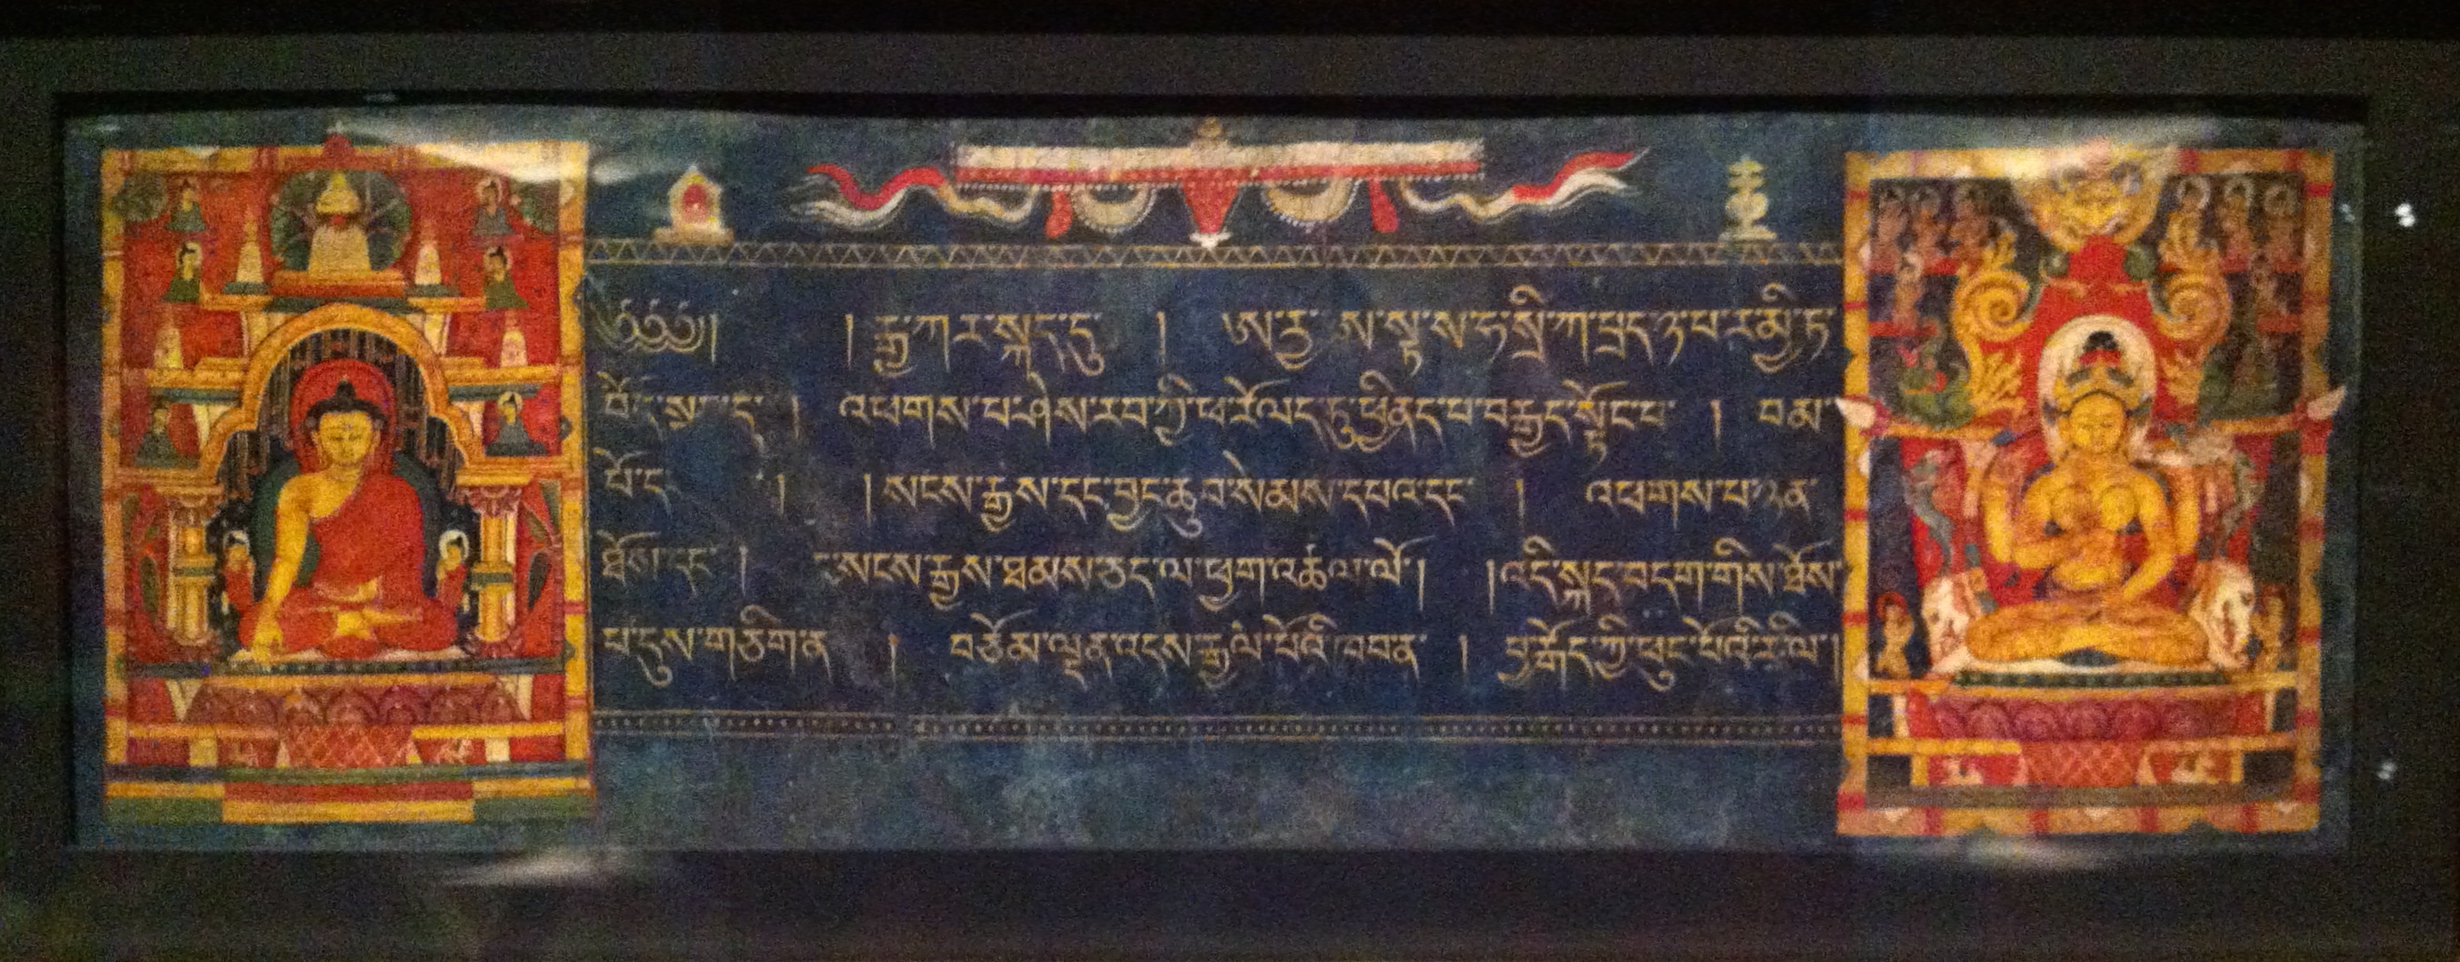 ༄༅༅། །རྒྱ་ཀར་སྐད་དུ །ཨ་རྱ་ ས་སྟ་ས་ཧ་སྲི་ཀ་པྲད་ཉ་པ་ར་མྱི་ཏ་
འཕགས་པ་ཤེས་རབ་ཀྱི་ཕ་རོལད་ཏུ་ཕྱིནད་པ་བརྒྱད་སྟོང་པ །བམ་
པོ་ད །སངས་རྒྱས་དང་བྱང་ཆུབ་སེམས་དཔའ་དང །འཕགས་པ་ཉན་
ཐོས་དང །སངས་རྒྱས་ཐམས་ཅད་ལ་ཕྱག་འཚལ་ལོ། །འདི་སྐད་བདག་གིས་ཐོས་
པ་དུས་གཅིག་ན །བཅོམ་ལྡན་འདས་རྒྱལ་པོའི་ཁབན་ །བྱ་རྒོད་ཀྱི་ཕུང་པོའི་རི་ལ།